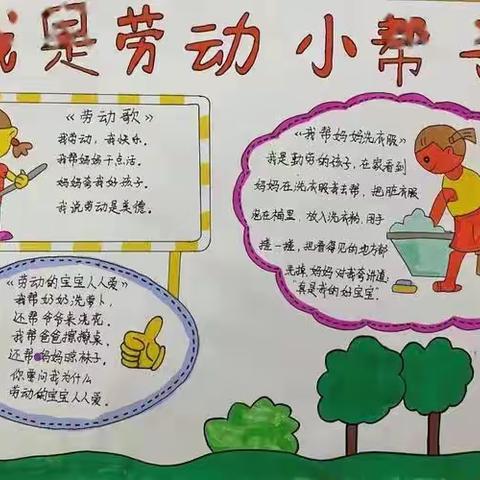 我是劳动小帮手
《劳动歌》
我劳动，我快乐。
我帮妈妈干点活。
妈妈夸我好孩子。
我说劳动是美德。
《我帮妈妈洗衣服》
我是勤劳的孩子，在家看到
妈妈在洗衣服我去帮，把脏衣服
泡在桶里，放入洗衣粉，用手
搓一搓，把看得见的地方都
洗掉，妈妈对我夸讲道，
"真是我的好宝宝"
《劳动的宝宝人人爱》
我帮奶奶洗萝卜，
还帮爷爷来浇花。
我帮爸爸擦擦桌，
还帮妈妈晾袜子。
你要问我为什么
劳动的宝宝人人爱。